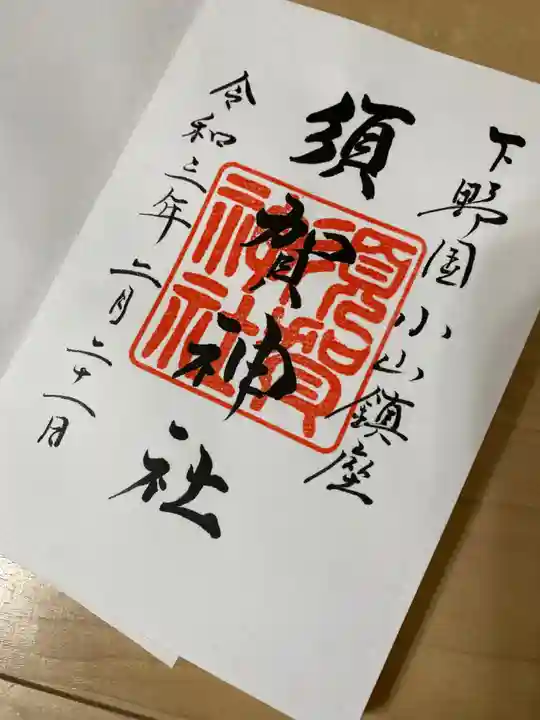 下野国小山鎮座
須賀神社
須賀神社
令和三年二月二十一日